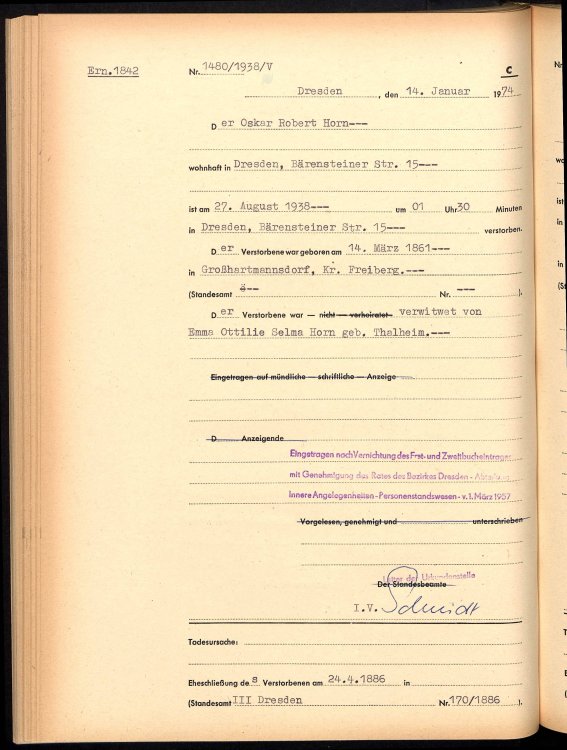 Ern.1842
Nr. 1480/1938/V
C
Dresden, den 14. Januar 1974
Der Oskar Robert Horn---
wohnhaft in Dresden, Bärensteiner Str. 15---
ist am 27. August 1938--- um 01 Uhr 30 Minuten
in Dresden, Bärensteiner Str. 15--- verstorben.
Der Verstorbene war geboren am 14. März 1861---
in Großhartmannsdorf, Kr. Freiberg.---
(Standesamt --- Nr. --- ).
Der Verstorbene war — nicht — verheiratet verwitwet von
Emma Ottilie Selma Horn geb. Thalheim.---
Eingetragen auf mündliche — schriftliche — Anzeige
D Anzeigende
Eingetragen nach Vernichtung des Erst- und Zweitbucheintrages
mit Genehmigung des Rates des Bezirkes Dresden - Abteilung
Innere Angelegenheiten - Personenstandswesen - v. 1. März 1957
Vorgelesen, genehmigt und unterschrieben
Leiter der Urkundenstelle
Der Standesbeamte
I.V. Schmidt
Todesursache:
Eheschließung des Verstorbenen am 24.4.1886 in
(Standesamt III Dresden Nr. 170/1886 ).